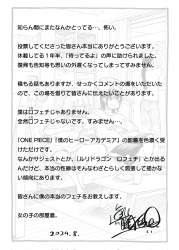 知らん間にまたなんかとってる…、怖い。
投票してくださった皆さん本当にありがとうございます。
休載してる1年半、「待ってるよ」の声に助けられました。
復帰も告知者も思いの外遅くなってしまってすみません。
積もる話もありますが、せっかくコメントの場をいただいた
ので、この場を借りて皆さんに伝えたいことがあります。
僕は口フェチじゃありません。
全然口フェチじゃないです。すみません…。
「ONE PIECE」「僕のヒーローアカデミア」の影響を色濃く受
けただけです。
なんかサジェストとか、「ルリドラゴン 口フェチ」とか出る
んだけど、本当の性癖はそんなわざとらしく露呈して描かな
い傾向にあります。
皆さんに僕の本当のフェチをお教えします。
女の子の部屋着。
2024.8.